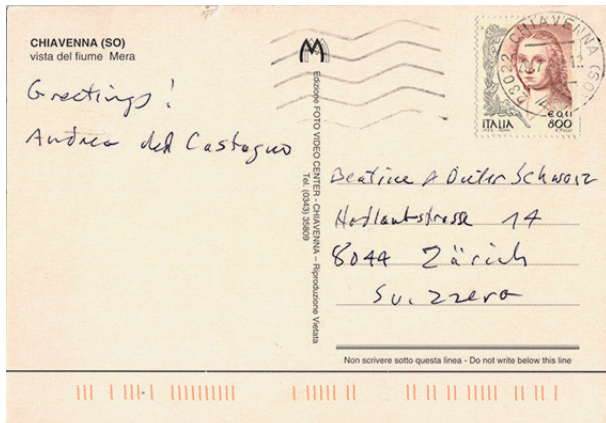 CHIAVENNA (SO)
vista del fiume Mera
Greetings!
Andrea del Castagno
Edizione FOTO VIDEO CENTER - CHIAVENNA – Riproduzione Vietata
Tel. (0343) 35809
23022 CHIAVENNA (SO)
€ 0,41
ITALIA 800
Beatrice & Dieter Schwarz
Hadlaubstrasse 14
8044 Zürich
Svizzera
Non scrivere sotto questa linea - Do not write below this line